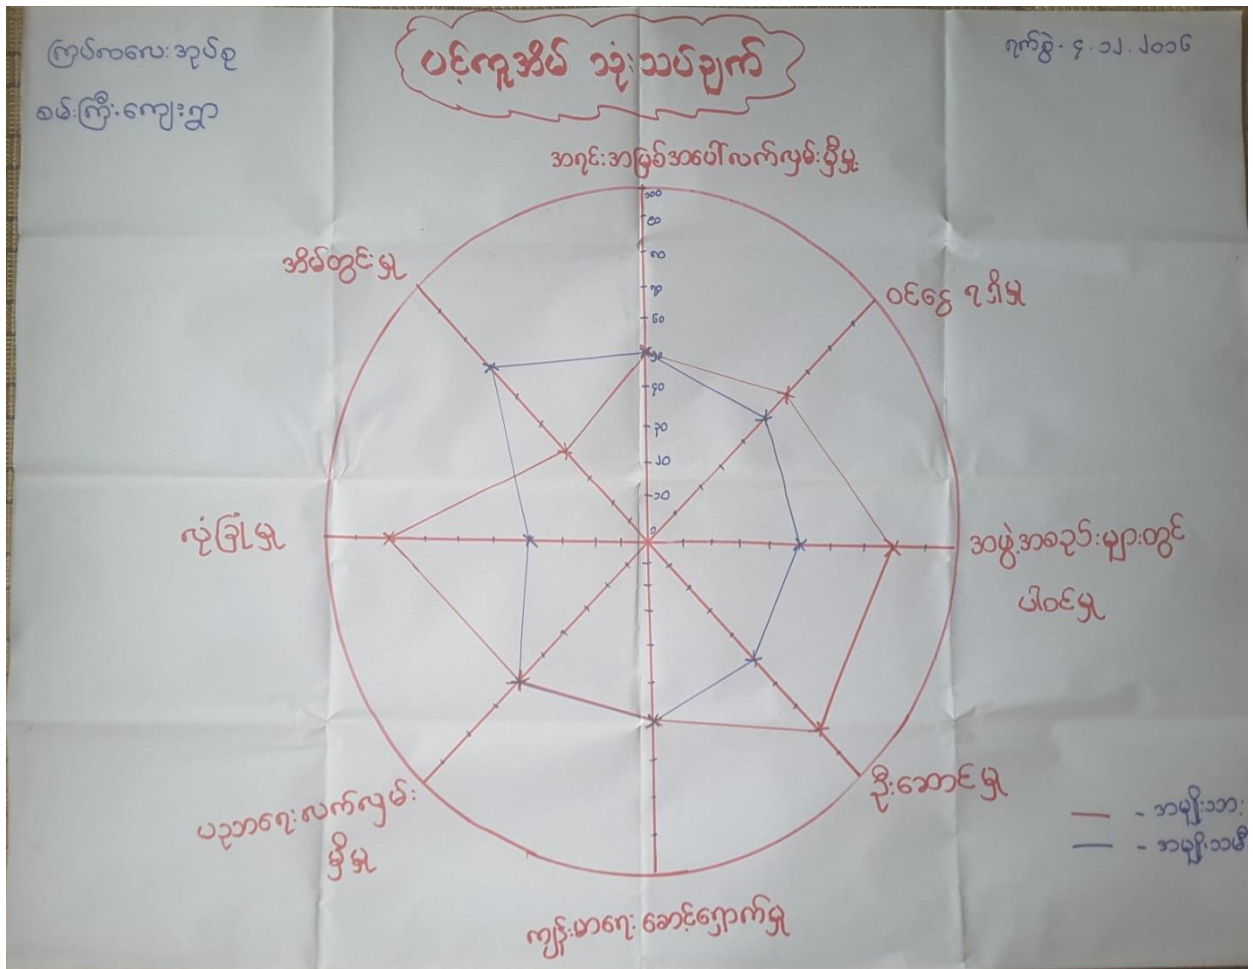 ကြပ်ကလေးအုပ်စု
စမ်းကြီးကျေးရွာ
ပင့်ကူအိမ် သုံးသပ်ချက်
ရက်စွဲ - ၄.၁၂.၂၀၁၆
အရင်းအမြစ်အပေါ်လက်လှမ်းမှီမှု
၁၀၀
၉၀
၈၀
၇၀
၆၀
၅၀
၄၀
၃၀
၂၀
၁၀
၀
အိမ်တွင်းမှု
ဝင်ငွေ ရရှိမှု
လုံခြုံမှု
အဖွဲ့အစည်းများတွင်
ပါဝင်မှု
ဦးဆောင်မှု
ပညာရေးလက်လှမ်း
မှီမှု
ကျန်းမာရေးစောင့်ရှောက်မှု
- အမျိုးသား
- အမျိုးသမီး